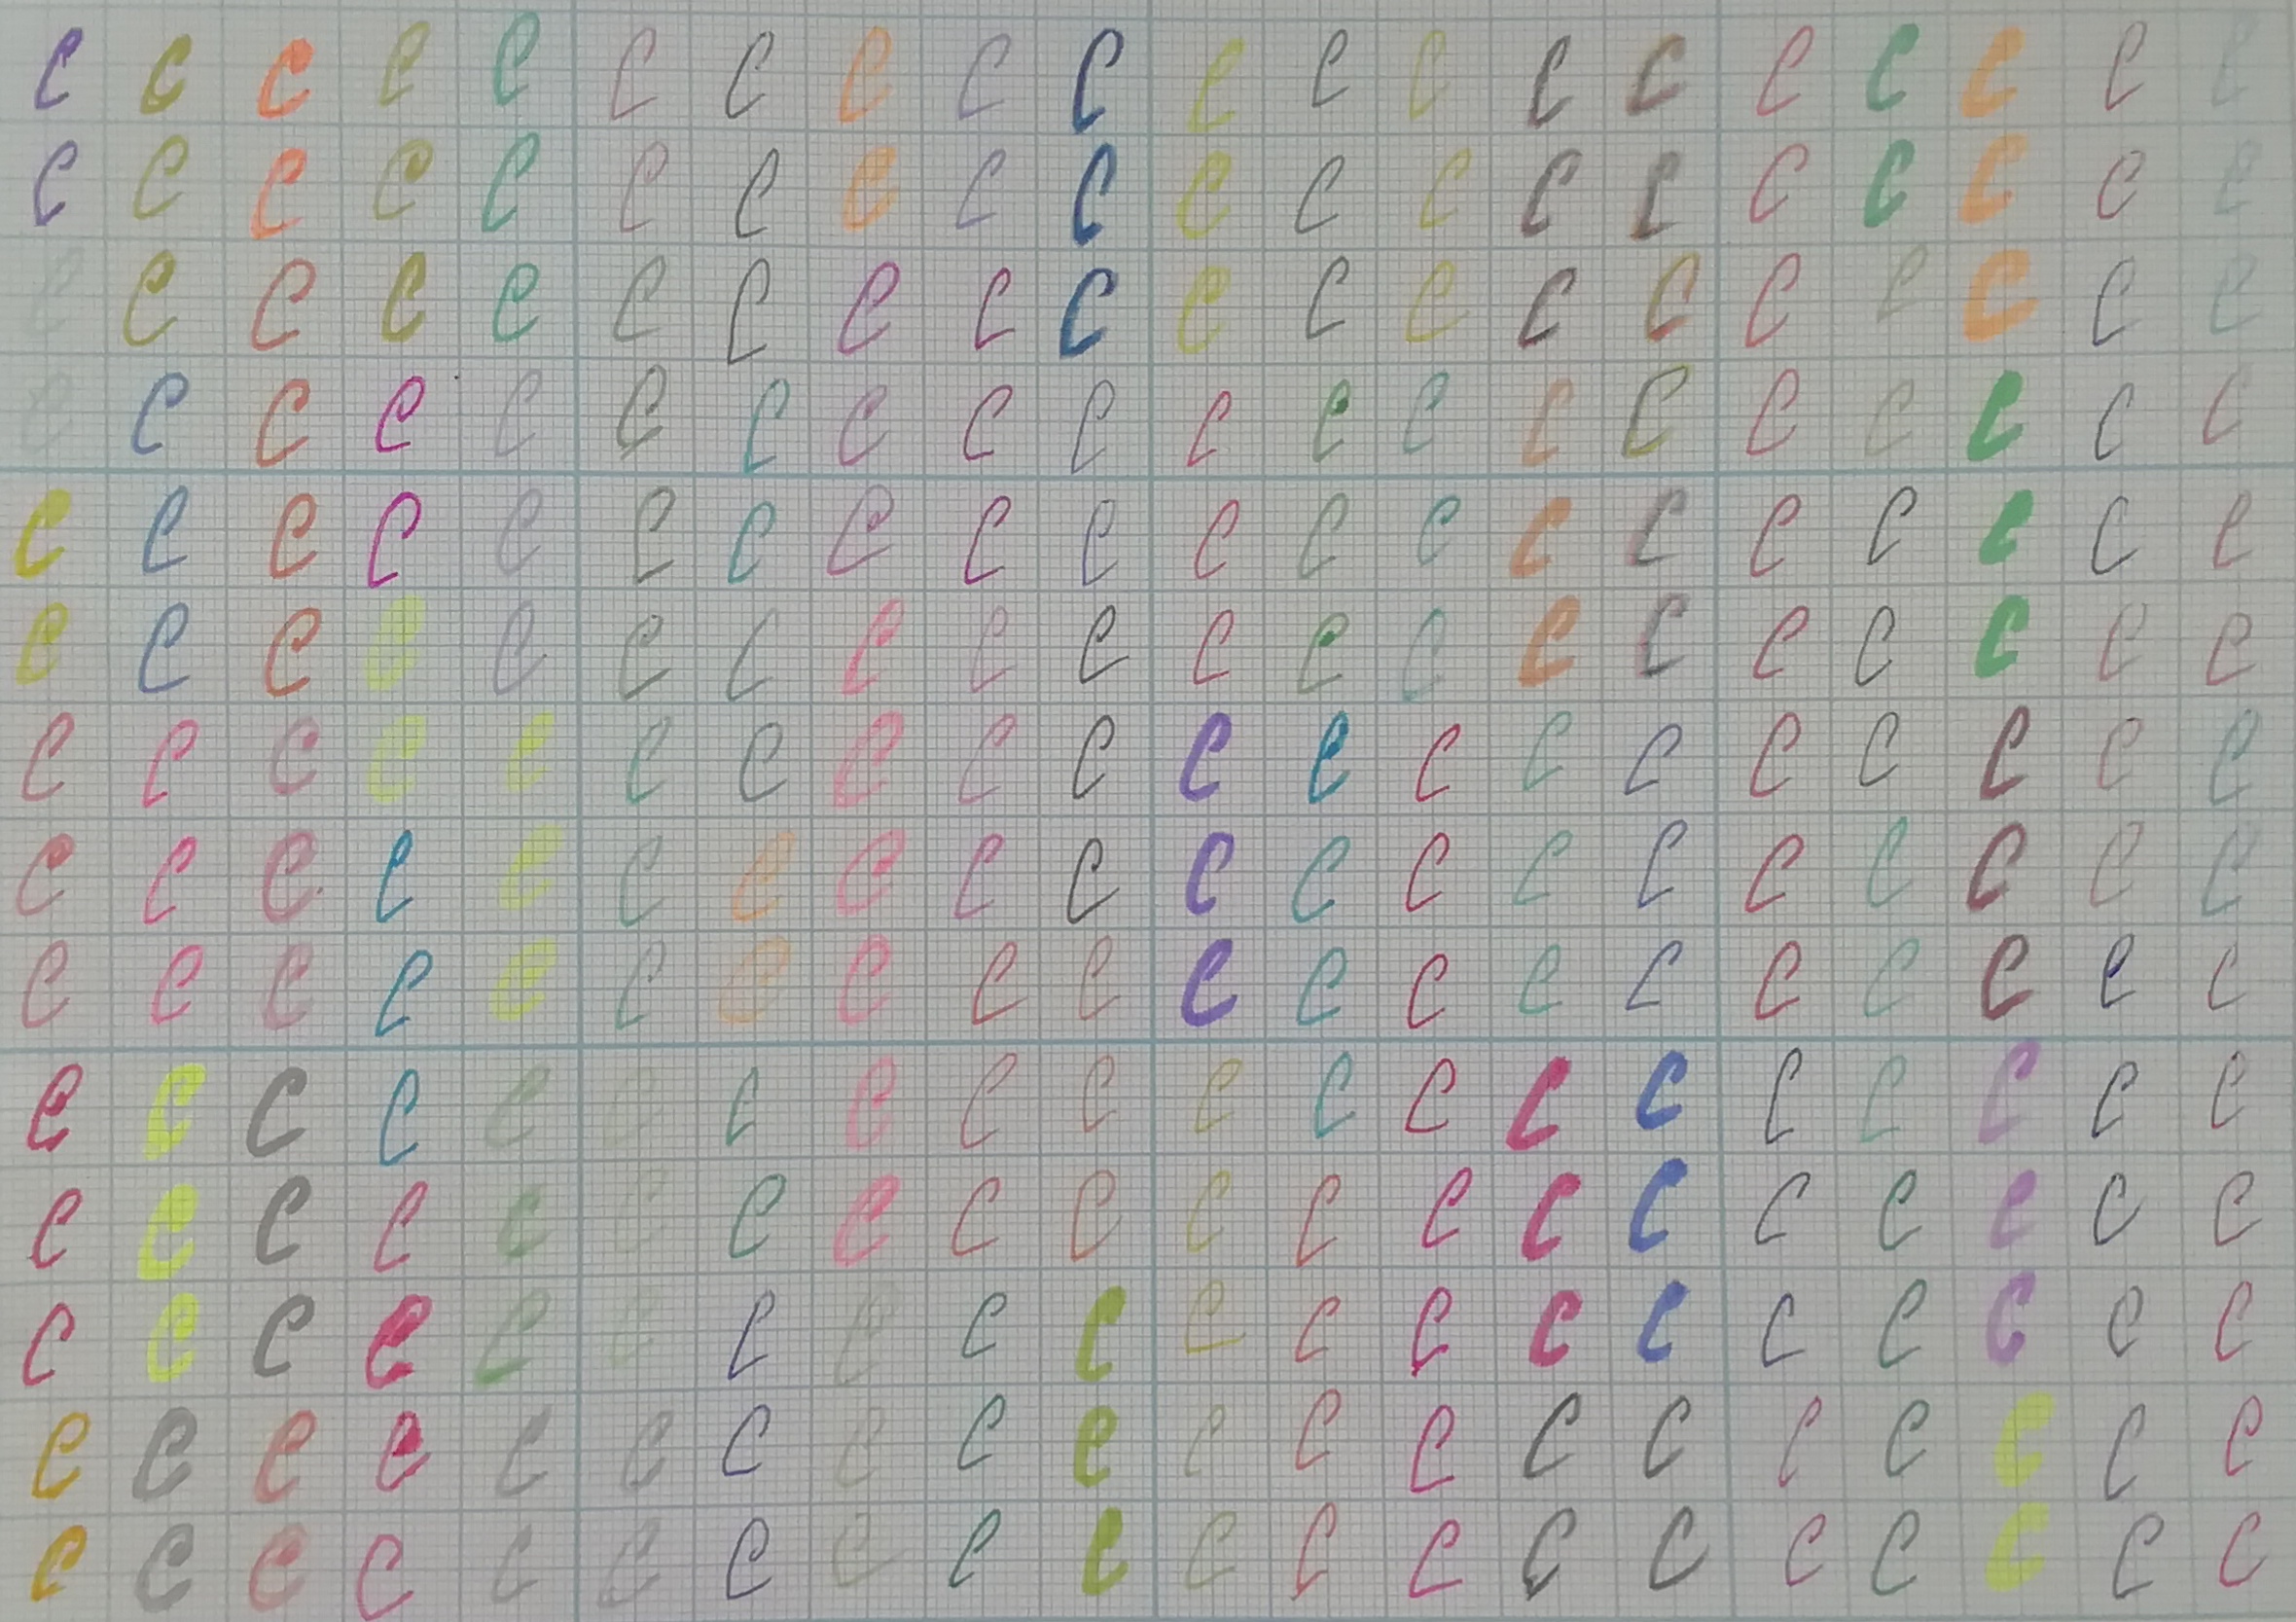 e e e e e e e e e e e e e e e e e e e e
e e e e e e e e e e e e e e e e e e e e
e e e e e e e e e e e e e e e e e e e e
e e e e e e e e e e e e e e e e e e e e
e e e e e e e e e e e e e e e e e e e e
e e e e e e e e e e e e e e e e e e e e
e e e e e e e e e e e e e e e e e e e e
e e e e e e e e e e e e e e e e e e e e
e e e e e e e e e e e e e e e e e e e e
e e e e e e e e e e e e e e e e e e e e
e e e e e e e e e e e e e e e e e e e e
e e e e e e e e e e e e e e e e e e e e
e e e e e e e e e e e e e e e e e e e e
e e e e e e e e e e e e e e e e e e e e